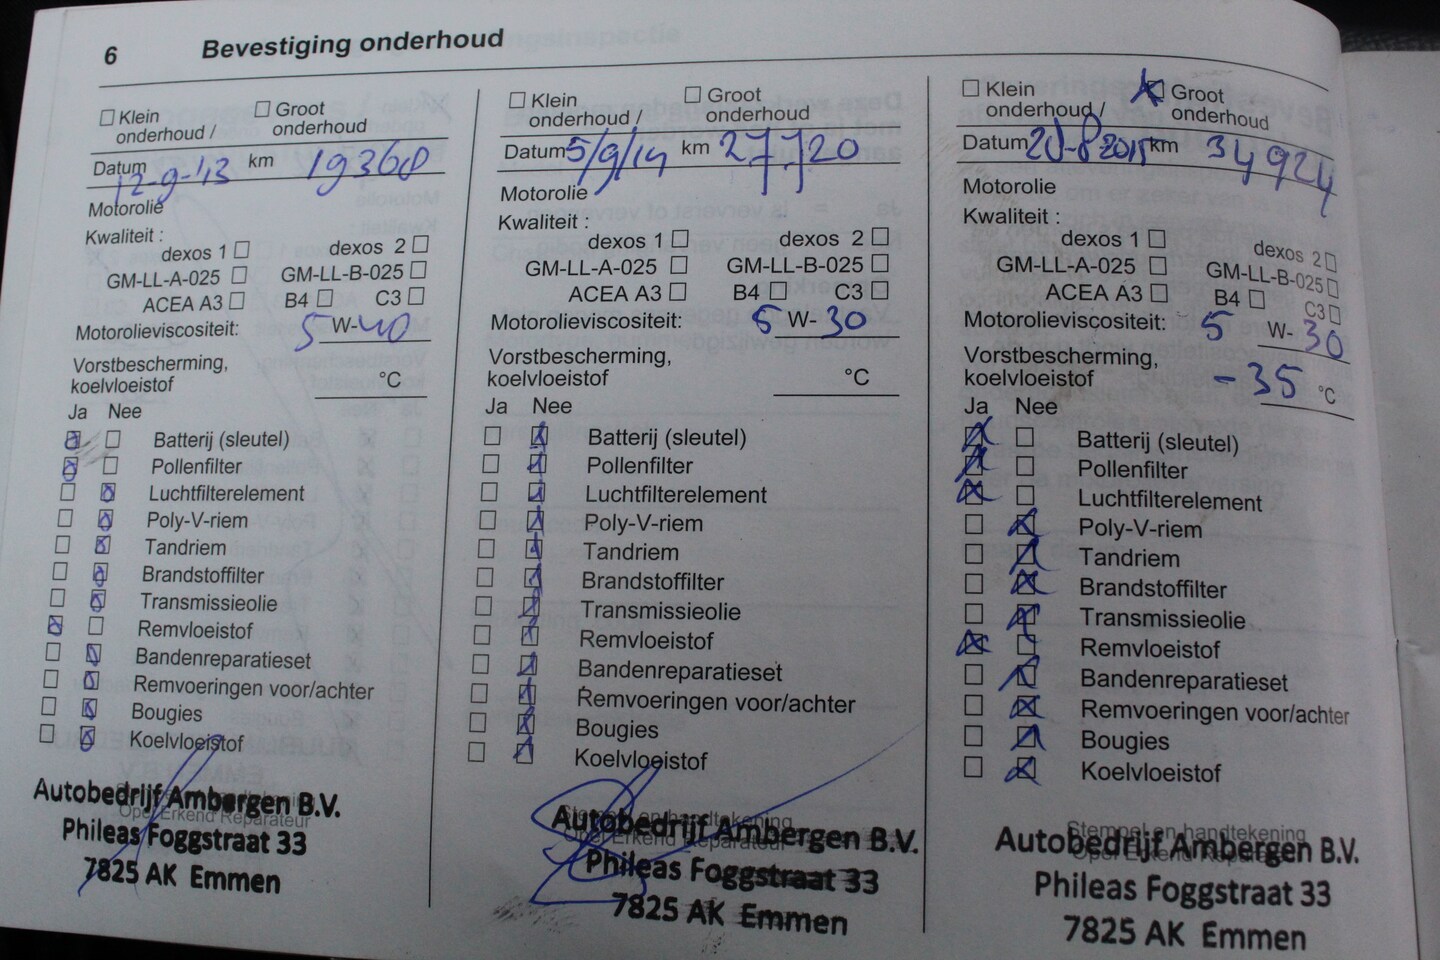 6 Bevestiging onderhoud
Klein onderhoud / Groot onderhoud
Datum 12-9-'13 km 19360
Motorolie
Kwaliteit :
dexos 1 dexos 2
GM-LL-A-025 GM-LL-B-025
ACEA A3 B4 C3
Motorolieviscositeit: 5 W-40
Vorstbescherming,
koelvloeistof °C
Ja Nee
Batterij (sleutel)
Pollenfilter
Luchtfilterelement
Poly-V-riem
Tandriem
Brandstoffilter
Transmissieolie
Remvloeistof
Bandenreparatieset
Remvoeringen voor/achter
Bougies
Koelvloeistof
Autobedrijf Ambergen B.V.
Opel Erkend Reparateur
Phileas Foggstraat 33
7825 AK Emmen
Klein onderhoud / Groot onderhoud
Datum 5/9/14 km 27720
Motorolie
Kwaliteit :
dexos 1 dexos 2
GM-LL-A-025 GM-LL-B-025
ACEA A3 B4 C3
Motorolieviscositeit: 5 W-30
Vorstbescherming,
koelvloeistof °C
Ja Nee
Batterij (sleutel)
Pollenfilter
Luchtfilterelement
Poly-V-riem
Tandriem
Brandstoffilter
Transmissieolie
Remvloeistof
Bandenreparatieset
Remvoeringen voor/achter
Bougies
Koelvloeistof
Stempel en handtekening
Autobedrijf Ambergen B.V.
Opel Erkend Reparateur
Phileas Foggstraat 33
7825 AK Emmen
Klein onderhoud / Groot onderhoud
Datum 8 2015 km 34924
Motorolie
Kwaliteit :
dexos 1 dexos 2
GM-LL-A-025 GM-LL-B-025
ACEA A3 B4 C3
Motorolieviscositeit: 5 W-30
Vorstbescherming,
koelvloeistof -35 °C
Ja Nee
Batterij (sleutel)
Pollenfilter
Luchtfilterelement
Poly-V-riem
Tandriem
Brandstoffilter
Transmissieolie
Remvloeistof
Bandenreparatieset
Remvoeringen voor/achter
Bougies
Koelvloeistof
Stempel en handtekening
Autobedrijf Ambergen B.V.
Opel Erkend Reparateur
Phileas Foggstraat 33
7825 AK Emmen